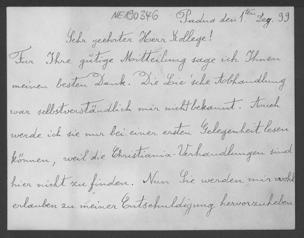 NE190346
Padua den 1ten Dez. 99
Sehr geehrter Herr Kollege!
Für Ihre gütige Mitteilung sage ich Ihnen
meinen besten Dank. Die Lie'sche Abhandlung
war selbstverständlich mir nicht bekannt. Auch
werde ich sie nur bei einer ersten Gelegenheit lesen
können, weil die Christiania-Verhandlungen sind
hier nicht zu finden. Nun Sie werden mir wohl
erlauben zu meiner Entschuldigung hervorzuheben